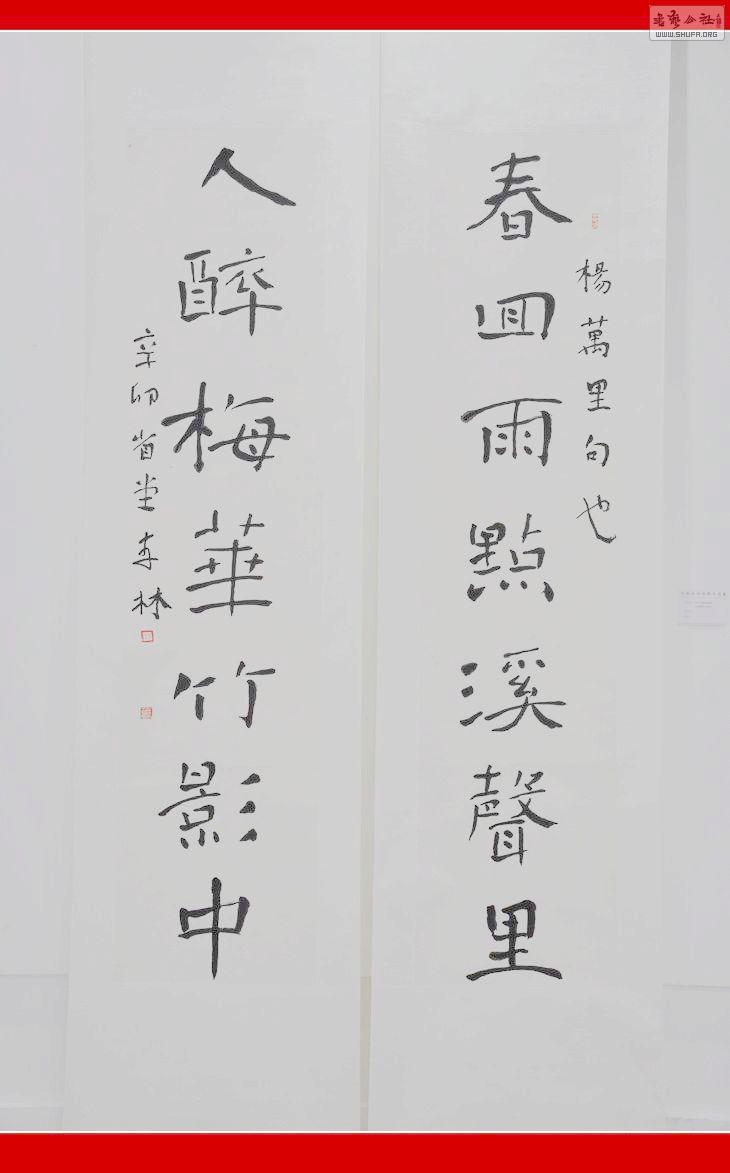 楊萬里句也
春回雨點溪聲里
人醉梅華竹影中
辛卯省堂李林
WWW.SHUFA.ORG